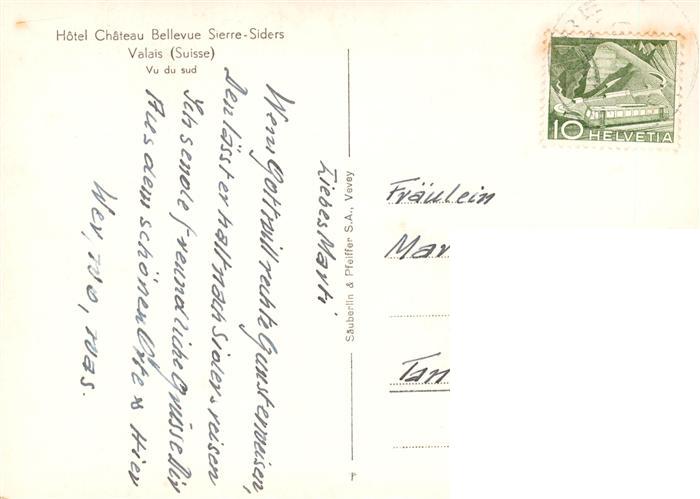 Hôtel Château Bellevue Sierre-Siders
Valais (Suisse)
Vu du sud
Liebes Marti
Wem Gott will rechte Gunst erweisen,
Den lässt er halt nach Siders reisen
Ich sende freundliche Grüsse Dir
Aus dem schönen Orte & Hier
Wer, wo, was.
Säuberlin & Pfeiffer S.A., Vevey
10 HELVETIA
Fräulein
Mar
Tan